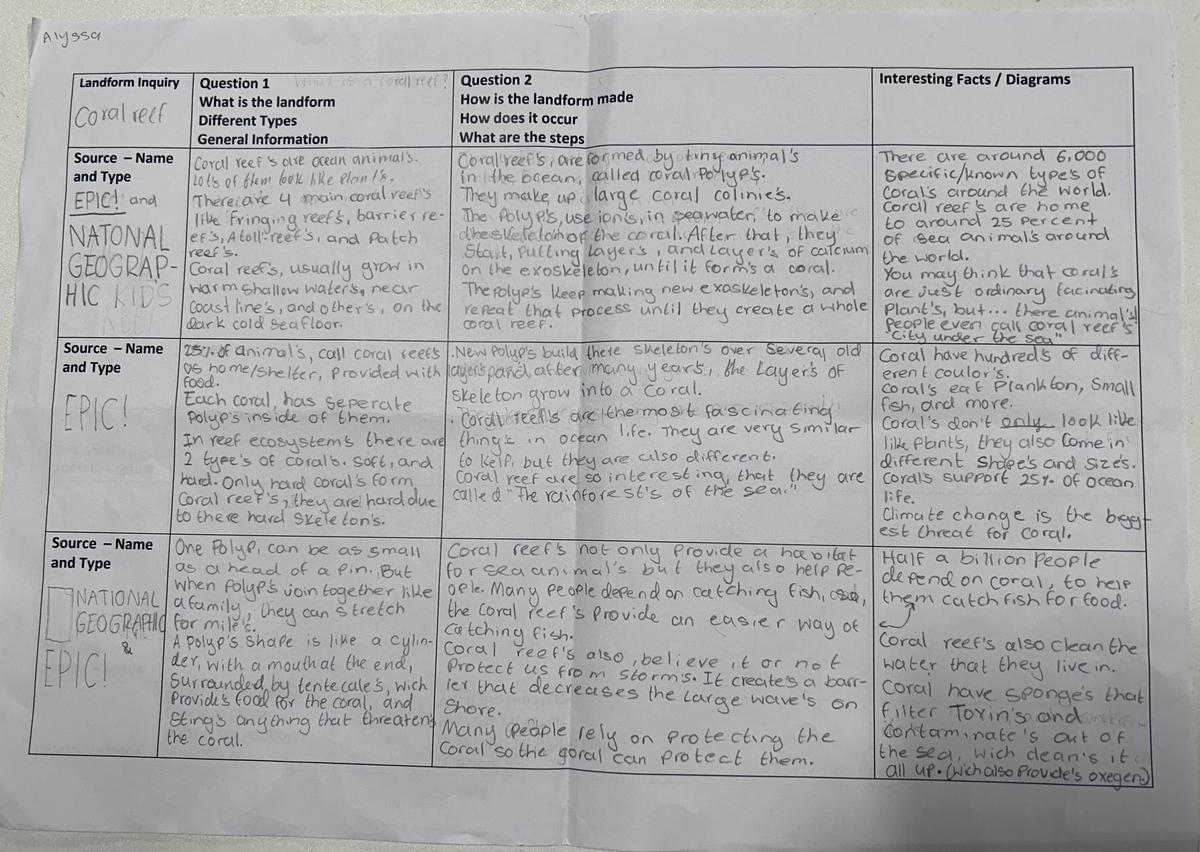 Alyssa
Landform Inquiry
Coral reef
Question 1 What is a coral reef?
What is the landform
Different Types
General Information
Question 2
How is the landform made
How does it occur
What are the steps
Interesting Facts / Diagrams
Source – Name
and Type
EPIC! and
NATONAL
GEOGRAP-
HIC KIDS
Coral reef's are ocean animal's.
Lots of them look like Plant's.
There are 4 main coral reef's
like fringing reef's, barrier re-
ef's, Atoll-reef's, and Patch
reef's.
Coral reef's, usually grow in
warm shallow water's, near
Coast line's, and other's, on the
dark cold sea floor.
Coral reef's, are formed by tiny animal's
in the ocean, called coral Polyp's.
They make up large coral colinies.
The Polyp's, use ion's, in seawater, to make
the skeleton of the coral. After that, they
Start, Putting Layer's, and Layer's of calcium
on the exoskeleton, until it form's a coral.
The Polyp's keep making new exoskeleton's, and
repeat that process until they create a whole
coral reef.
There are around 6,000
Specific/known type's of
Coral's around the world.
Coral reef's are home
to around 25 Percent
of sea animal's around
the world.
You may think that coral's
are just ordinary facinating
Plant's, but... there animal's!
People even call coral reef's
"City under the sea"
Source – Name
and Type
EPIC!
25% of animal's, call coral reefs
as home/shelter, Provided with
food.
Each coral, has seperate
Polyp's inside of them.
In reef ecosystem's there are
2 type's of coral's. Soft, and
hard. Only hard coral's form
Coral reef's, they are hard due
to there hard skeleton's.
. New Polyp's build there skeleton's over Several old
layer's, and, after many years, the Layer's of
skeleton grow into a Coral.
. Coral reef's are the most fascinating
thing's in ocean life. They are very similar
to kelp, but they are also different.
Coral reef are so interesting, that they are
called "The rainforest's of the sea."
Coral have hundred's of diff-
erent coulor's.
Coral's eat Plankton, Small
fish, and more.
Coral's don't only look like
like Plant's, they also come in
different shape's and size's.
Coral's support 25% of ocean
life.
Climate change is the bigg-
est threat for coral.
Source – Name
and Type
NATIONAL
GEOGRAPHIC
&
EPIC!
One Polyp, can be as small
as a head of a Pin. But
when Polyp's join together like
a family, they can stretch
for mile's.
A Polyp's shape is like a Cylin-
der, with a mouth at the end,
Surrounded by tentecale's, wich
Provide's food for the coral, and
Sting's anything that threatens
the coral.
Coral reef's not only Provide a habitat
for sea animal's but they also help Pe-
ople. Many People depend on catching fish,
the Coral reef's Provide an easier way of
Catching fish.
Coral reef's also, believe it or not
Protect us from storm's. It create's a barr-
ier that decreases the Large wave's on
Shore.
Many People rely on Protecting the
Coral so the goral can Protect them.
Half a billion People
depend on coral, to help
them catch fish for food.
Coral reef's also clean the
water that they live in.
Coral have sponge's that
filter Toxin's and
Contaminate's out of
the sea, wich clean's it
all up. (wich also Provide's oxegen.)